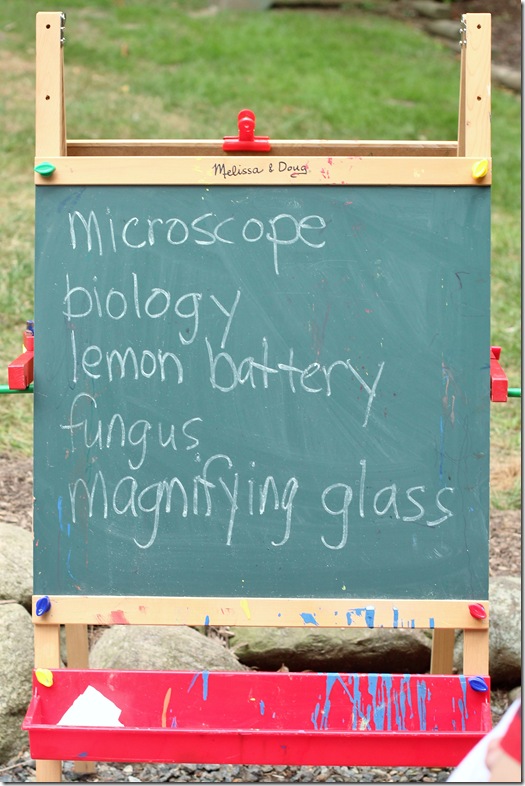 Melissa & Doug
microscope
biology
lemon battery
fungus
magnifying glass